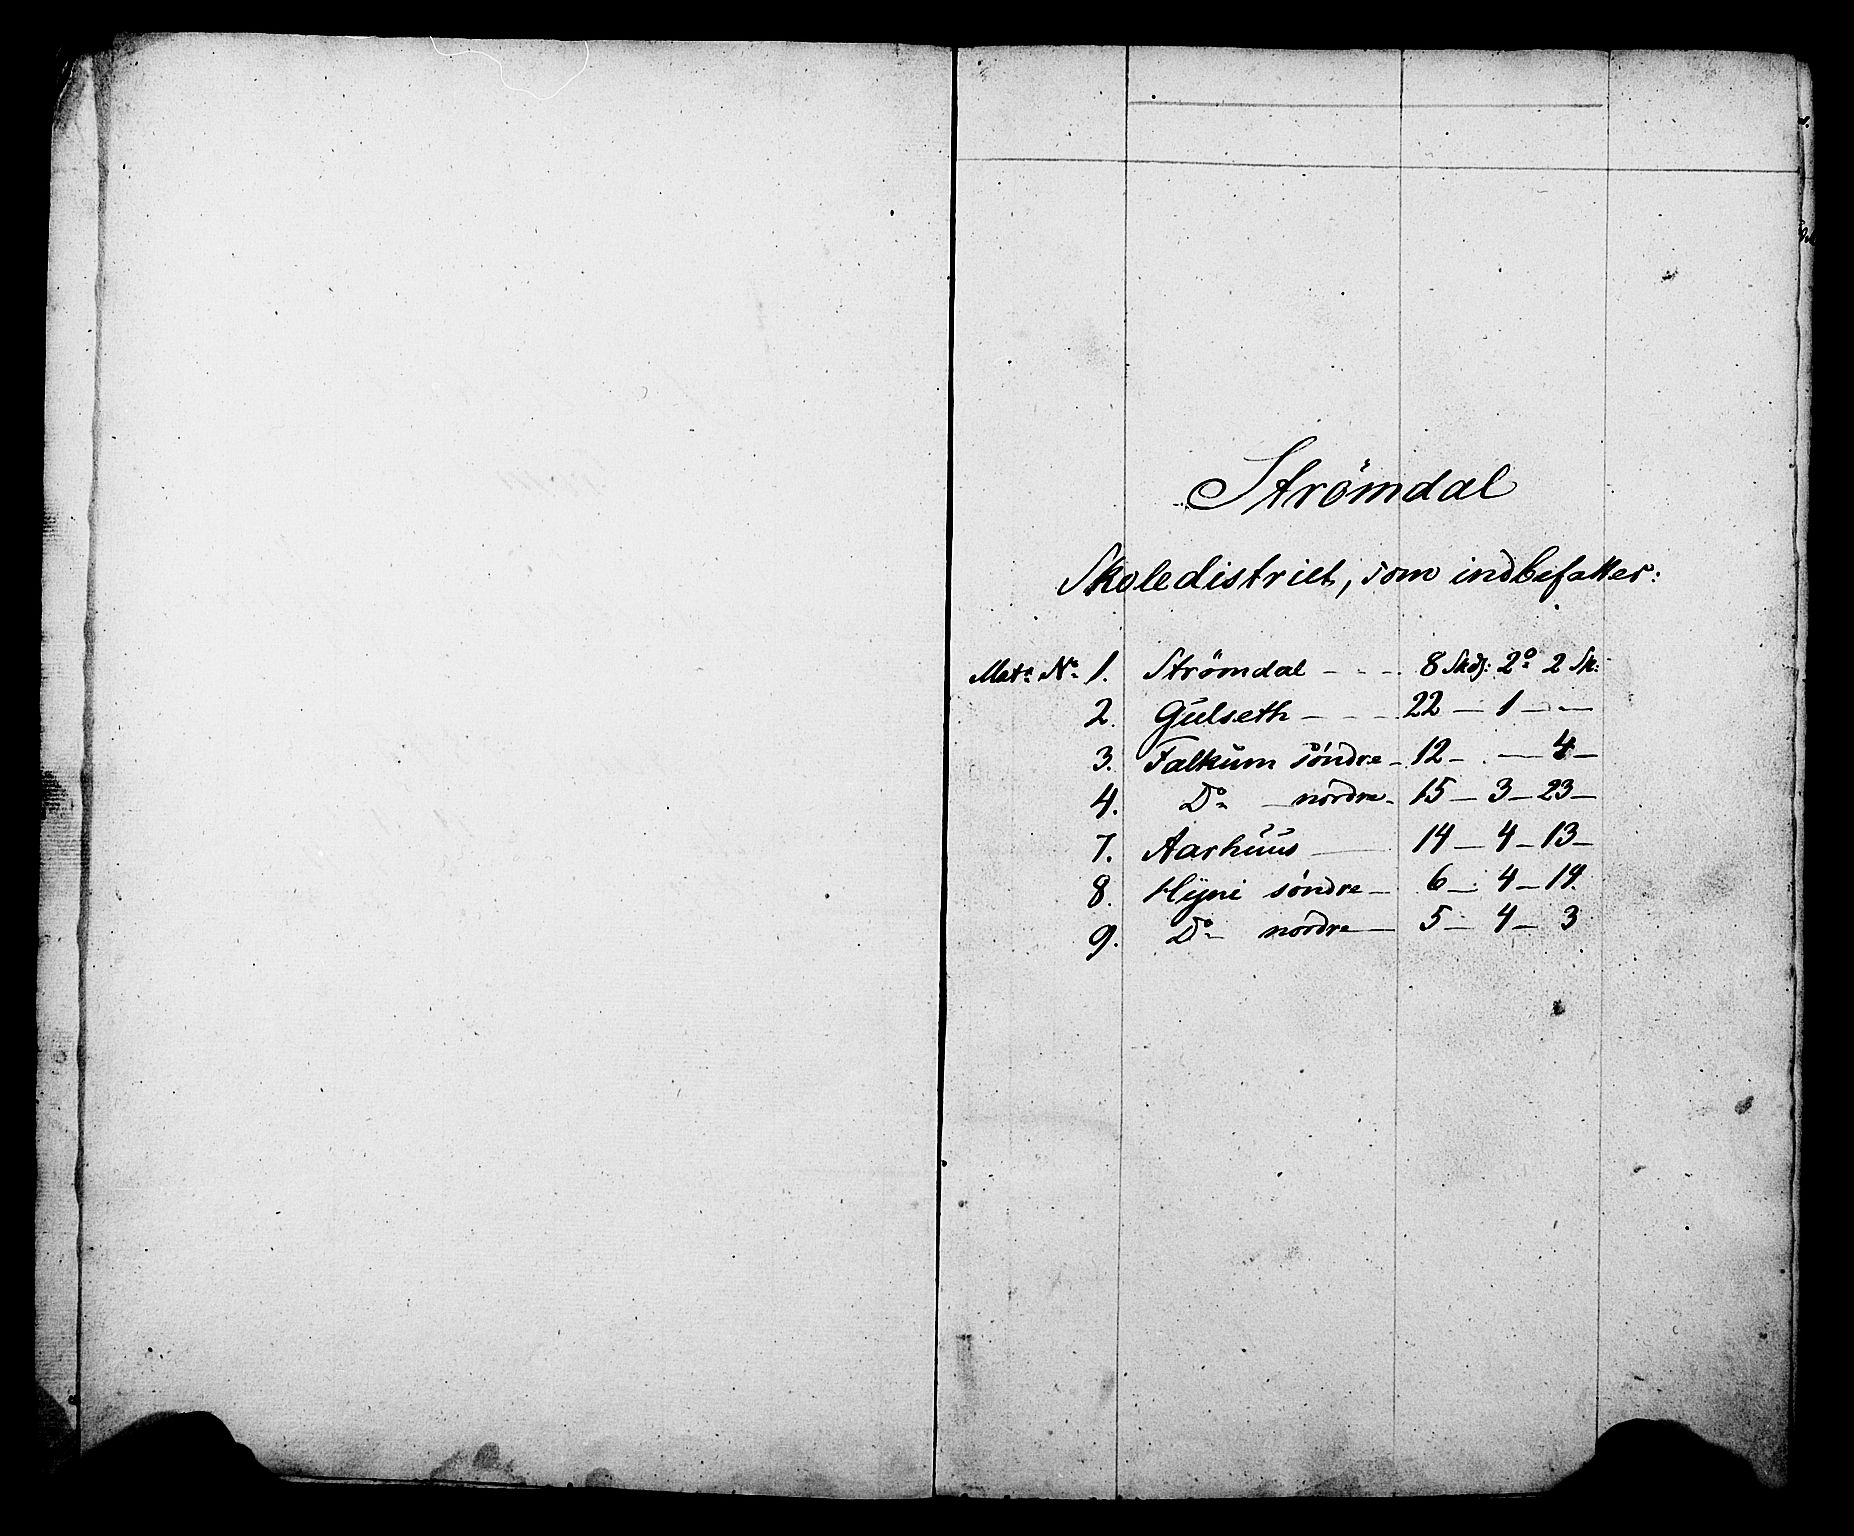 Strömdal
Skoledistrict, som indbefatter:
Matr. No. 1. Strömdal - - - 8 Skdj: 2o 2 Sk:
2. Gulseth - - - 22 — 1 — —
3. Falkum söndre - 12 - . — 4 —
4. Do — nordre - 15 — 3 — 23 —
7. Aarhuus — 14 — 4 — 13 —
8. Hyni söndre — 6 — 4 — 19.
9. Do — nordre — 5 — 4 — 3